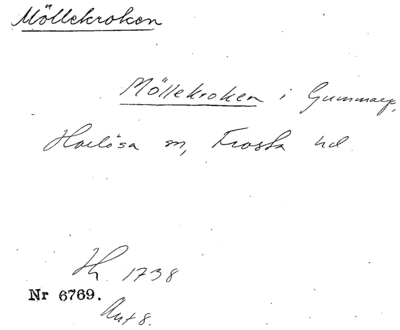 Möllekroken
Möllekroken i Gummarp,
Harlösa sn, Frosta hd
Hh 1738
Nr 6769.
Ant 8.